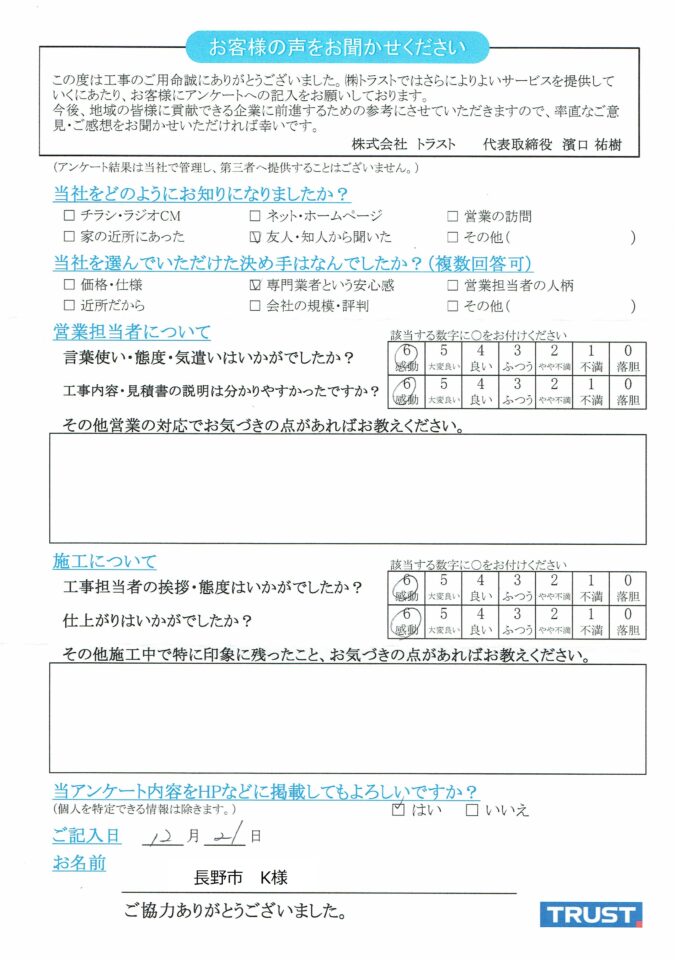 お客様の声をお聞かせください
この度は工事のご用命誠にありがとうございました。㈱トラストではさらによりよいサービスを提供して
いくにあたり、お客様にアンケートへの記入をお願いしております。
今後、地域の皆様に貢献できる企業に前進するための参考にさせていただきますので、率直なご意
見・ご感想をお聞かせいただければ幸いです。
株式会社 トラスト 代表取締役 濱口 祐樹
(アンケート結果は当社で管理し、第三者へ提供することはございません。)
当社をどのようにお知りになりましたか？
□ チラシ・ラジオCM □ ネット・ホームページ □ 営業の訪問
□ 家の近所にあった ☑ 友人・知人から聞いた □ その他( )
当社を選んでいただけた決め手はなんでしたか？(複数回答可)
□ 価格・仕様 ☑ 専門業者という安心感 □ 営業担当者の人柄
□ 近所だから □ 会社の規模・評判 □ その他( )
営業担当者について 該当する数字に○をお付けください
言葉使い・態度・気遣いはいかがでしたか？ 6 5 4 3 2 1 0
感動 大変良い 良い ふつう やや不満 不満 落胆
工事内容・見積書の説明は分かりやすかったですか？ 6 5 4 3 2 1 0
感動 大変良い 良い ふつう やや不満 不満 落胆
その他営業の対応でお気づきの点があればお教えください。
施工について 該当する数字に○をお付けください
工事担当者の挨拶・態度はいかがでしたか？ 6 5 4 3 2 1 0
感動 大変良い 良い ふつう やや不満 不満 落胆
仕上がりはいかがでしたか？ 6 5 4 3 2 1 0
感動 大変良い 良い ふつう やや不満 不満 落胆
その他施工中で特に印象に残ったこと、お気づきの点があればお教えください。
当アンケート内容をHPなどに掲載してもよろしいですか？
(個人を特定できる情報は除きます。) ☑ はい □ いいえ
ご記入日 12 月 21 日
お名前 長野市 K様
ご協力ありがとうございました。
TRUST.